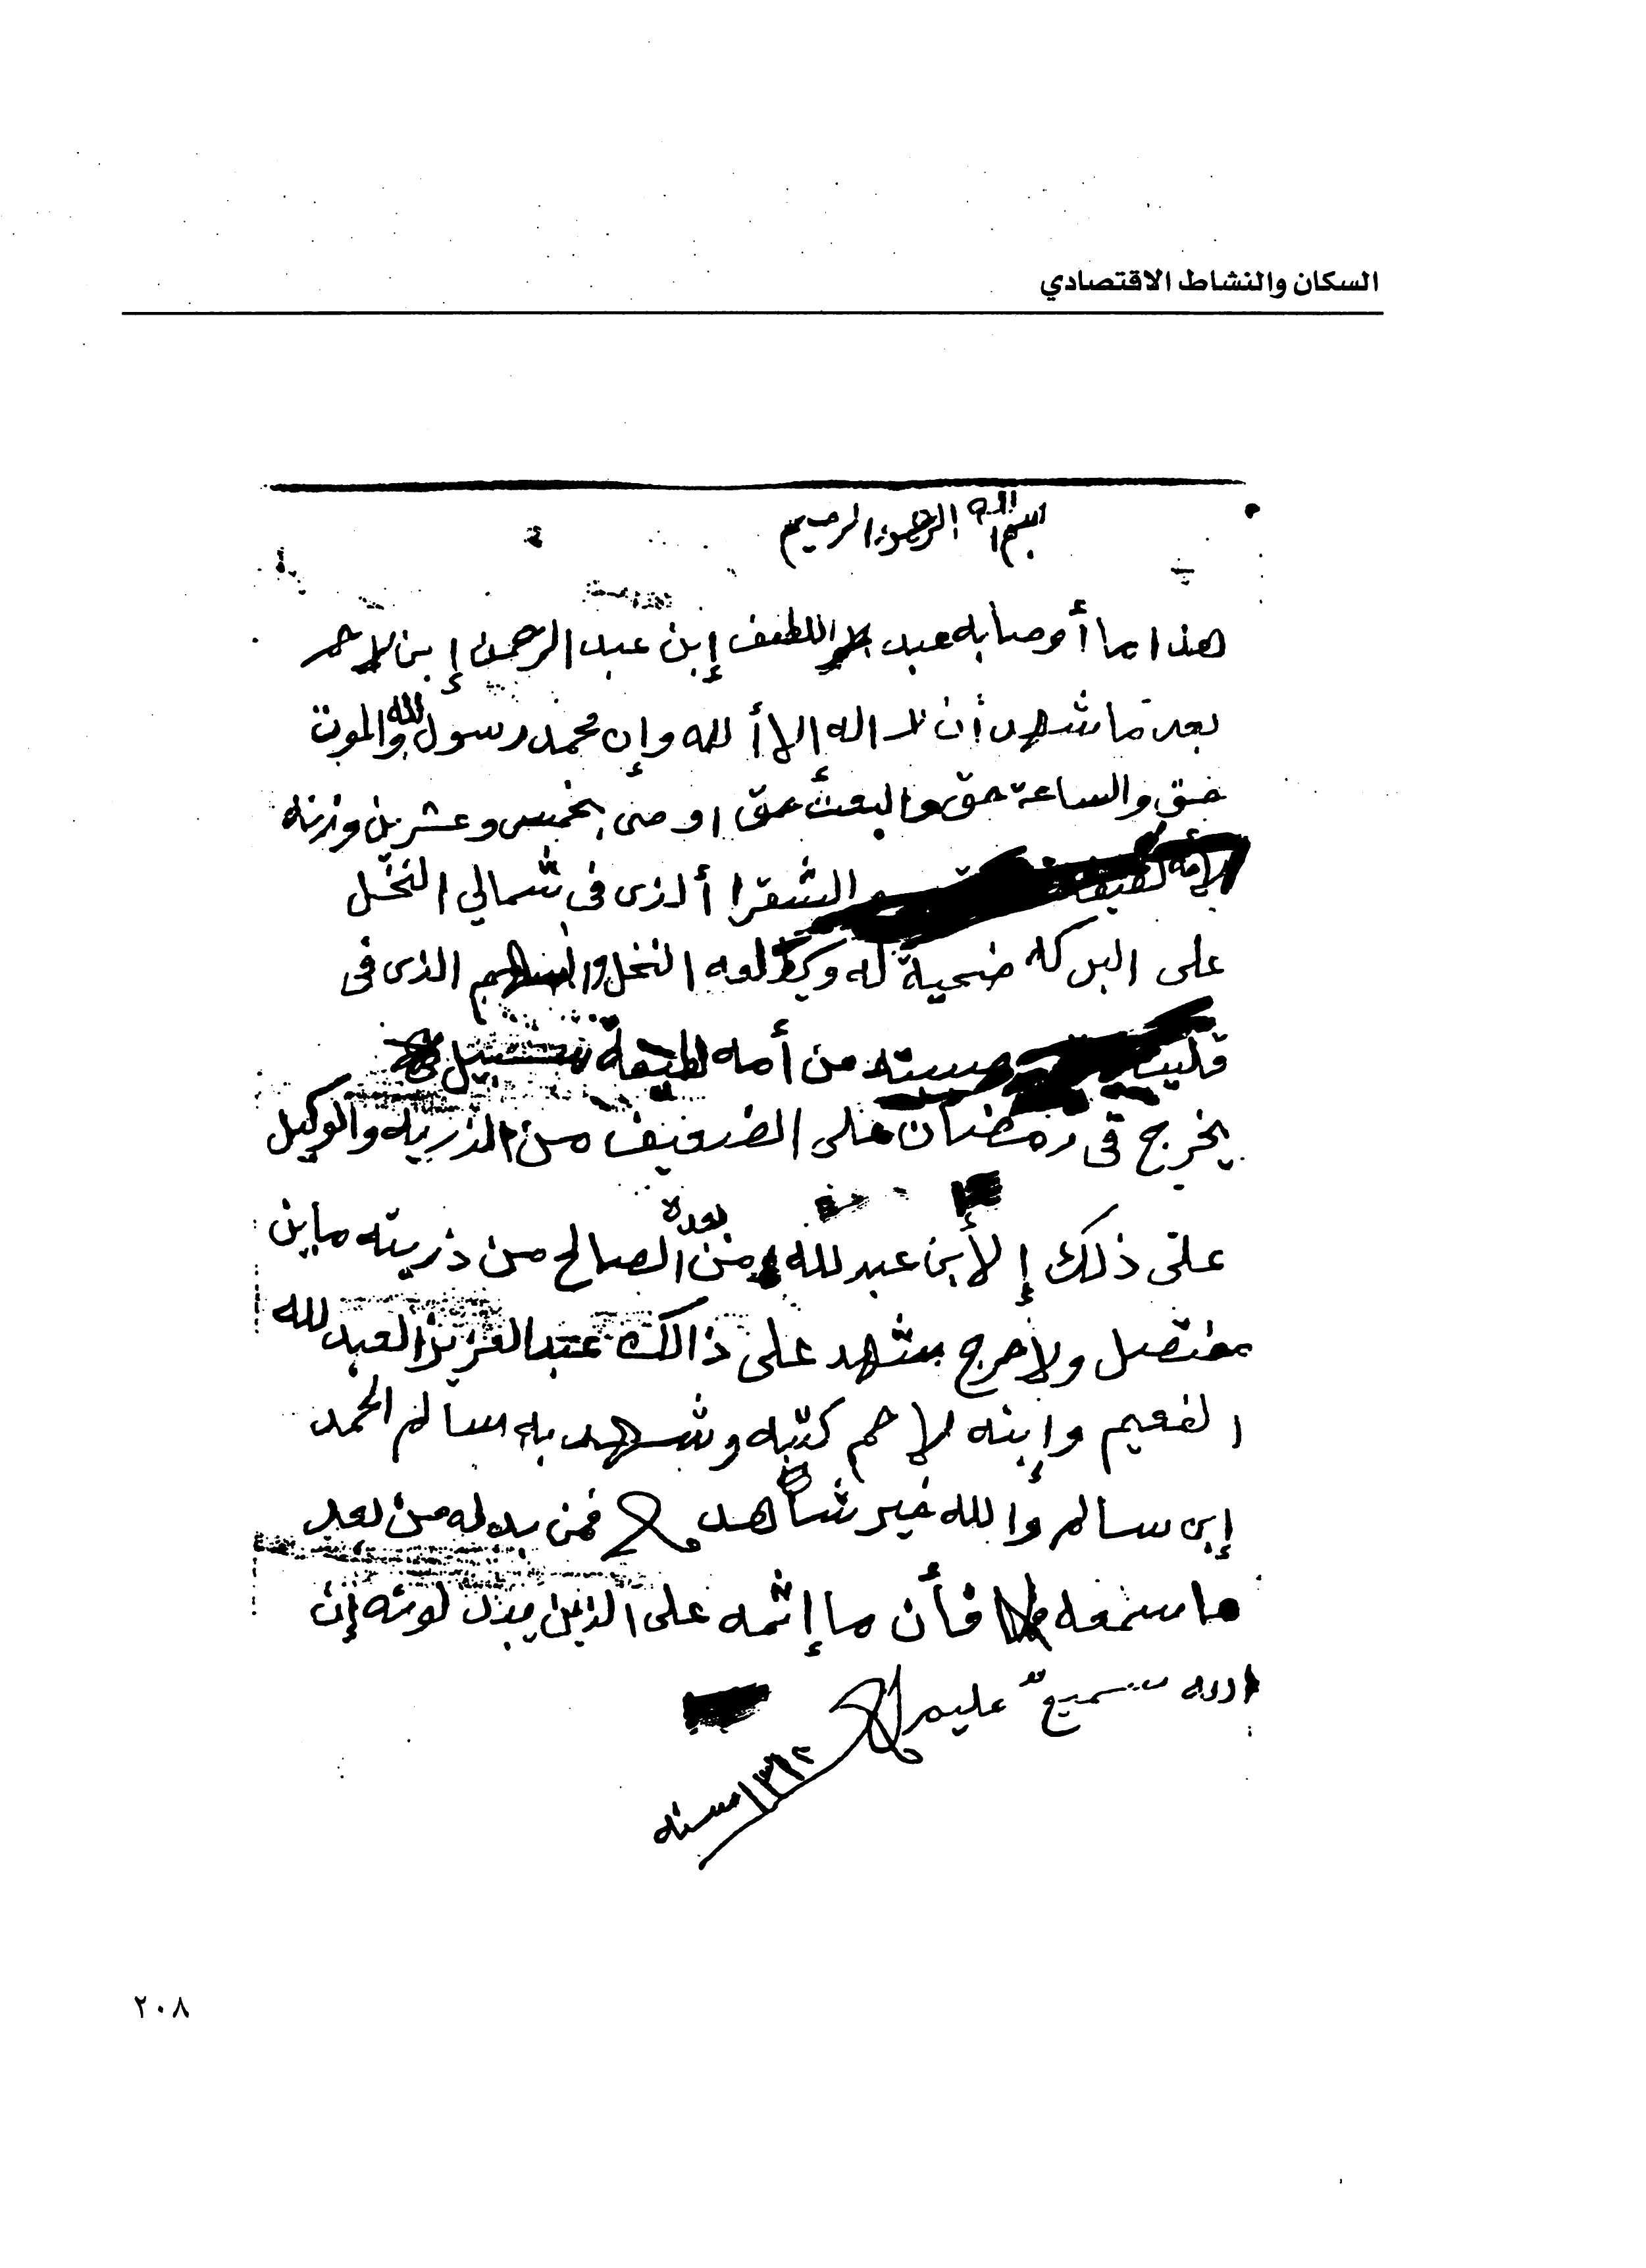 السكان والنشاط الاقتصادي
بسم الله الرحمن الرحيم
هذا ما أوصا به عبد اللطيف إبن عبد الرحمن إبن لاحم
بعد ما شهد أن لا اله إلا أ لله وإن محمد رسول لله والموت
حق والساعة حق والبعث حق اوصى بخمس وعشرين وزنه
لأمه لطيفة الشقرا ألذى فى شمالي النخل
على البركه ضحية له وكذلوه النخل والسهم الذى فى
قليب من أمه لطيفة
يخرج فى رمضان على الضعيف من الذريه والوكيل
على ذلك إلأبن عبد لله من بعده الصالح من ذريته ماين
ولاحرج شهد على ذالك عبد العزيز العبد لله
الفعيم وإبنه لاحم كتبه وشهد به سالم المحمد
إبن سالم والله خير شاهد فمن بدله من بعد
ما سمعه فأن ما إثمه على الذين يبدلونه إن
الله سميع عليم
١٣١٢ سنه
٢٠٨